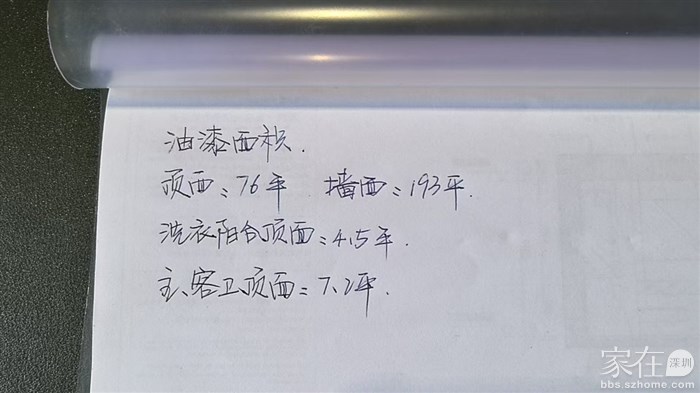 油漆面积.
顶面：76平 墙面：193平.
洗衣阳台顶面：4.5平.
主、客卫顶面：7.2平.
家在深圳
bbs.szhome.com